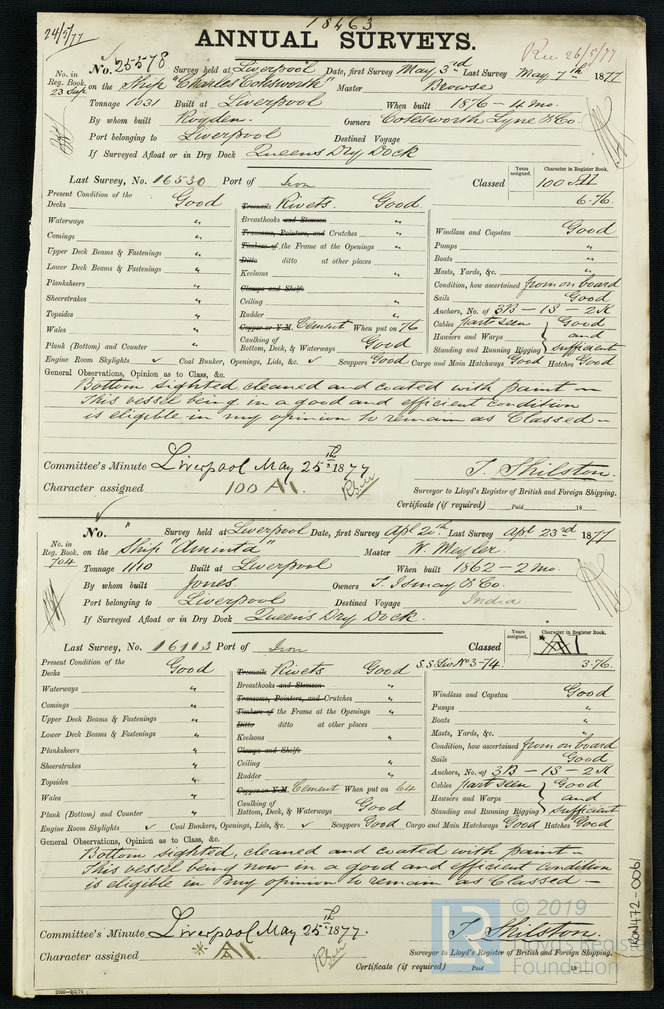 18463
24/5/77
ANNUAL SURVEYS.
Rec 26/5/77
No. in Reg. Book.
23 Sup
No. 25578 Survey held at Liverpool Date, first Survey May 3rd Last Survey May 7th 1877
on the Ship "Charles Cotesworth" Master Bewse
Tonnage 1031 Built at Liverpool When built 1876 - 4 mo.
By whom built Royden. Owners Cotesworth Lyne & Co.
Port belonging to Liverpool Destined Voyage
If Surveyed Afloat or in Dry Dock Queens Dry Dock
Last Survey, No. 16530 Port of Iron Classed
Years assigned.
Character in Register Book.
100 A1
6.76.
Present Condition of the
Decks Good
Waterways "
Comings "
Upper Deck Beams & Fastenings "
Lower Deck Beams & Fastenings "
Planksheers "
Sheerstrakes "
Topsides "
Wales "
Plank (Bottom) and Counter "
Treenails Rivets. Good
Breasthooks and Stemson "
Transoms, Pointers, and Crutches "
Timbers of the Frame at the Openings "
Ditto ditto at other places
Keelsons "
Clamps and Shelfs
Ceiling "
Rudder "
Copper or Y.M. Cement When put on 76
Caulking of Bottom, Deck, & Waterways Good
Windlass and Capstan Good
Pumps "
Boats "
Masts, Yards, &c. "
Condition, how ascertained from on board
Sails Good
Anchors, No. of 3B - 1S - 2K
Cables part seen } Good
Hawsers and Warps } and
Standing and Running Rigging } sufficient
Engine Room Skylights ✓ Coal Bunker, Openings, Lids, &c. ✓ Scuppers Good Cargo and Main Hatchways Good Hatches Good
General Observations, Opinion as to Class, &c.
Bottom sighted cleaned and coated with paint -
This vessel being in a good and efficient condition
is eligible in my opinion to remain as Classed -
Committee's Minute Liverpool May 25th 1877
Character assigned 100 A1.
T. Shilston.
Surveyor to Lloyd's Register of British and Foreign Shipping.
Certificate (if required) Paid 18
No. in Reg. Book.
704
No. " Survey held at Liverpool Date, first Survey Apl 20th Last Survey Apl 23rd 1877
on the Ship "Aminta" Master W. Meyler.
Tonnage 1110 Built at Liverpool When built 1862 - 2 mo.
By whom built Jones. Owners T. Ismay & Co.
Port belonging to Liverpool Destined Voyage India
If Surveyed Afloat or in Dry Dock Queens Dry Dock.
Last Survey, No. 16113 Port of Iron Classed
Years assigned.
Character in Register Book.
A1
S.S. Liv. No 3-74 3.76.
Present Condition of the
Decks Good
Waterways "
Comings "
Upper Deck Beams & Fastenings "
Lower Deck Beams & Fastenings "
Planksheers "
Sheerstrakes "
Topsides "
Wales "
Plank (Bottom) and Counter "
Treenails Rivets Good
Breasthooks and Stemson "
Transoms, Pointers, and Crutches "
Timbers of the Frame at the Openings "
Ditto ditto at other places
Keelsons "
Clamps and Shelfs
Ceiling "
Rudder "
Copper or Y.M. Cement When put on 64
Caulking of Bottom, Deck, & Waterways Good
Windlass and Capstan Good
Pumps "
Boats "
Masts, Yards, &c. "
Condition, how ascertained from on board
Sails Good
Anchors, No. of 3B - 1S - 2K
Cables part seen } Good
Hawsers and Warps } and
Standing and Running Rigging } sufficient
Engine Room Skylights ✓ Coal Bunkers, Openings, Lids, &c. ✓ Scuppers Good Cargo and Main Hatchways Good Hatches Good
General Observations, Opinion as to Class, &c.
Bottom sighted, cleaned and coated with paint -
This vessel being now in a good and efficient condition
is eligible in my opinion to remain as Classed -
Committee's Minute Liverpool May 25th 1877.
Character assigned * A1.
T. Shilston.
Surveyor to Lloyd's Register of British and Foreign Shipping.
Certificate (if required) Paid 18
IRON472-0061
LR
© 2019
Lloyd's Register
Foundation